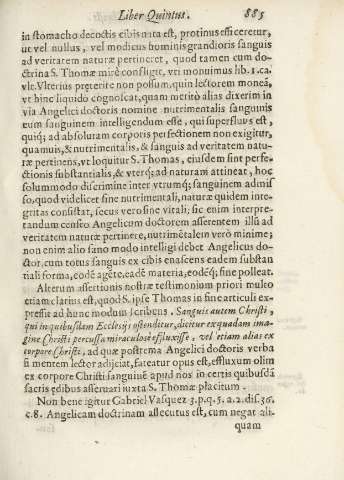 Liber Quintus. 885
in stomacho decoctis cibis nata est, protinus efficeretur,
ut vel nullus, vel modicus hominis grandioris sanguis
ad veritatem naturæ pertineret, quod tamen cum do-
ctrina S. Thomæ mirè confligit, vti monuimus lib. 1. ca.
vlt. Vlterius præterire non possum, quin lectorem moneã,
vt hinc liquido cognoscat, quam meritò aliàs dixerim in
via Angelici doctoris nomine nutrimentalis sanguinis
eum sanguinem intelligendum esse, qui superfluus est,
quiq; ad absolutam corporis perfectionem non exigitur,
quamuis, & nutrimentalis, & sanguis ad veritatem natu-
ræ pertinens, vt loquitur S. Thomas, eiusdem sint perfe-
ctionis substantialis, & vterq; ad naturam attineat, hoc
solummodo discrimine inter vtrumq; sanguinem admis
so, quod videlicet sine nutrimentali, naturæ quidem inte-
gritas consistat, secus vero sine vitali; sic enim interpre-
tandum censeo Angelicum doctorem asserentem illũ ad
veritatem naturæ pertinere, nutrimẽtalem verò minime;
non enim alio sano modo intelligi debet Angelicus do-
ctor, cum totus sanguis ex cibis enascens eadem substan
tiali forma, eodẽ agẽte, eadẽ materia, eodẽq; fine polleat.
Alterum assertionis nostræ testimonium priori multo
etiam clarius est, quod S. ipse Thomas in fine articuli ex-
pressit ad hunc modum scribens. Sanguis autem Christi,
qui in quibusdam Ecclesijs ostenditur, dicitur ex quadam ima-
gine Christi percussa miraculose effluxisse, vel etiam aliàs ex
corpore Christi, ad quæ postrema Angelici doctoris verba
si mentem lector adijciat, fateatur opus est, effluxum olim
ex corpore Christi sanguinẽ apud nos in certis quibusdã
sacris ędibus asseruari iuxta S. Thomæ placitum.
Non bene igitur Gabriel Vasquez 3. p. q. 5. a. 2. dis. 36.
c. 8. Angelicam doctrinam assecutus est, cum negat ali-
quam